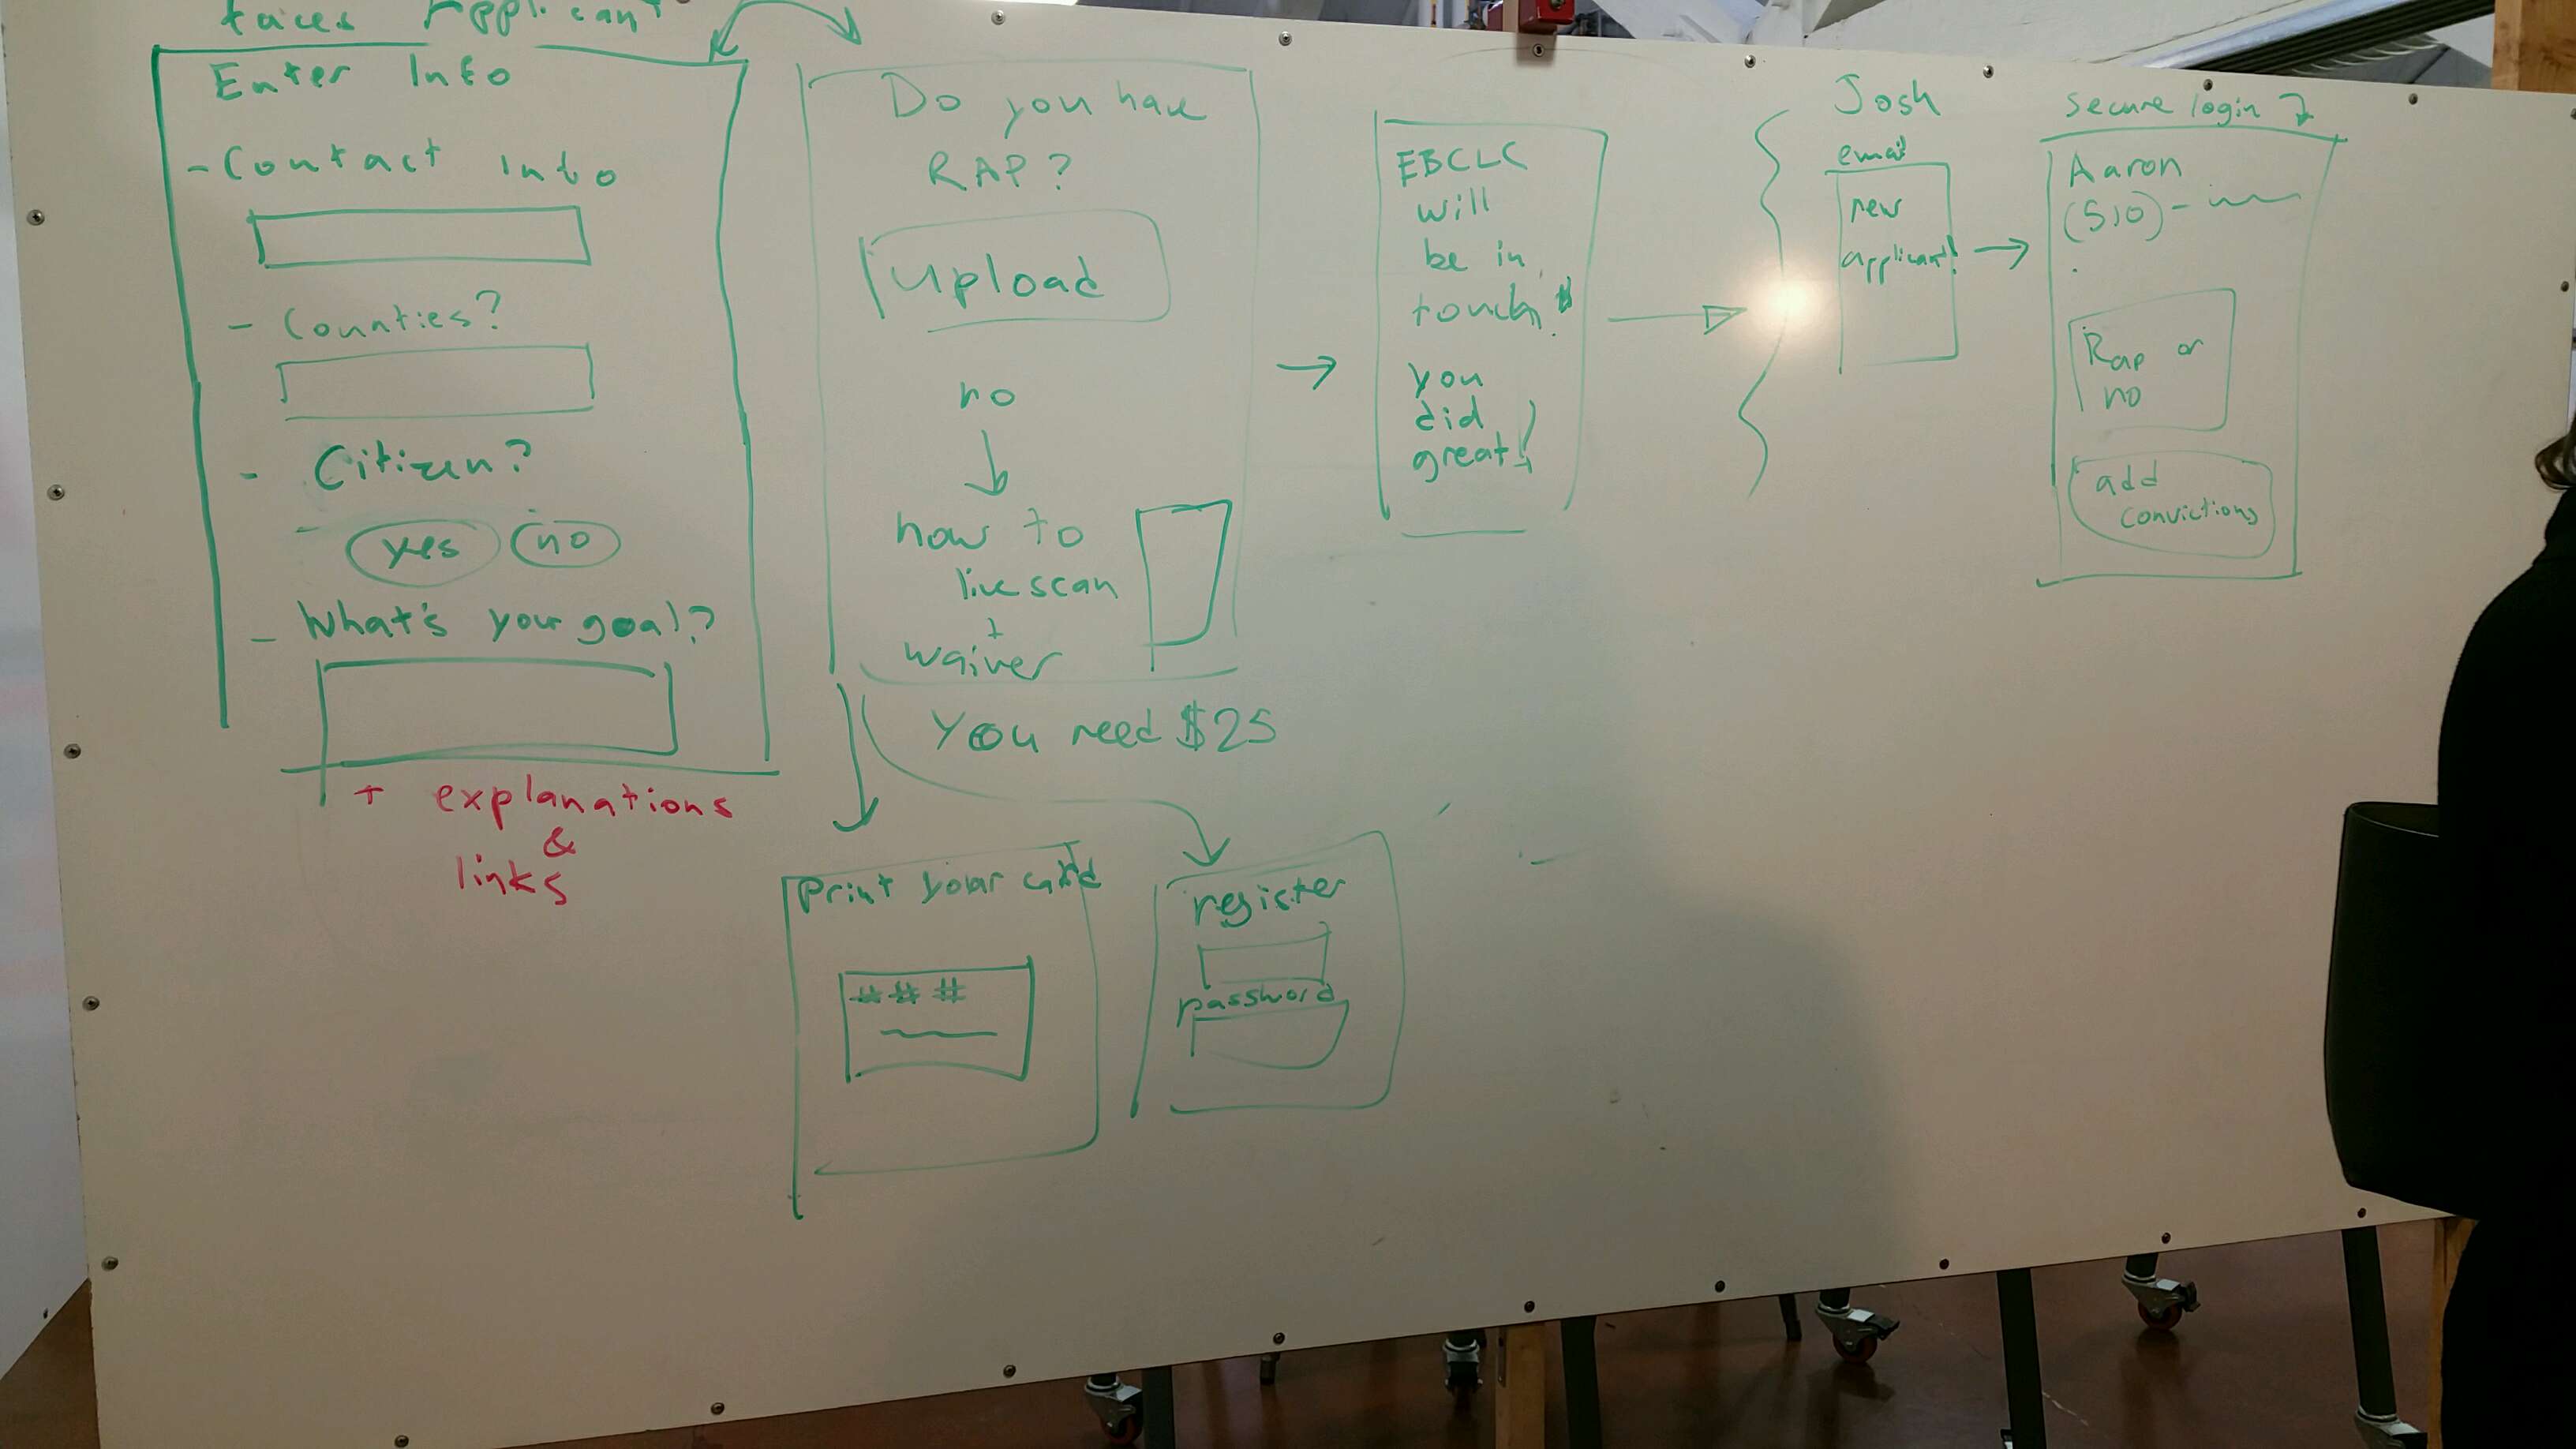 faces Applicant
Enter Info
- Contact Info
- Counties?
- Citizen?
yes no
- What's your goal?
+ explanations
&
links
Do you have
RAP?
upload
no
how to
live scan
+
waiver
You need $25
Print your card
# # #
register
password
EBCLC
will
be in
touch!
you
did
great!
Josh
email
new
applicant!
secure login
Aaron
(510) -
Rap or
no
add
convictions